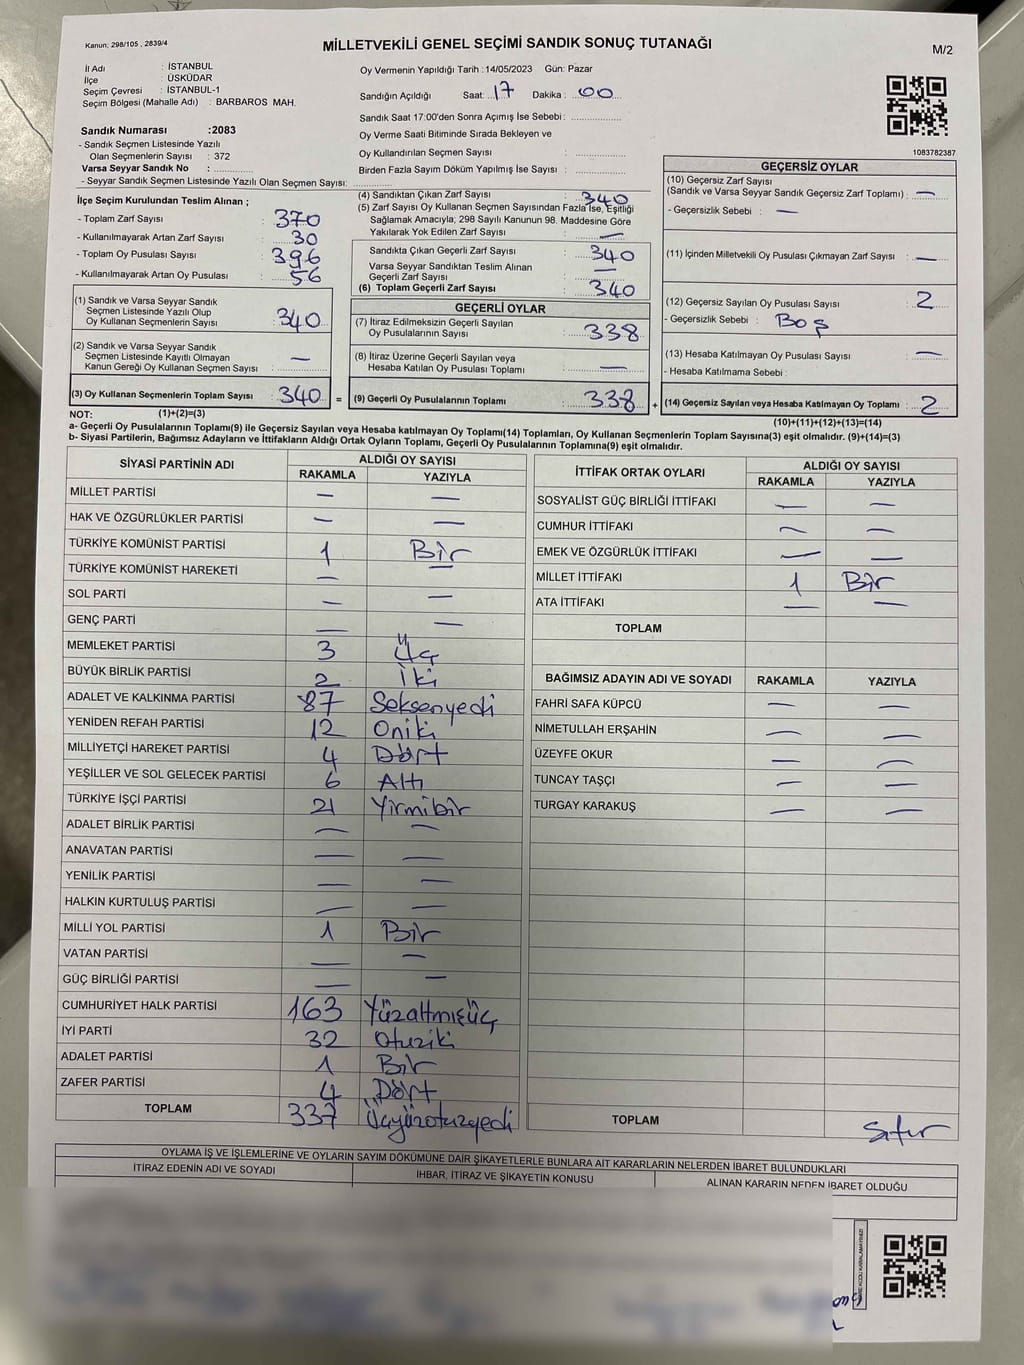 Kanun; 298/105 , 2839/4
MİLLETVEKİLİ GENEL SEÇİMİ SANDIK SONUÇ TUTANAĞI
M/2
İl Adı : İSTANBUL
İlçe : ÜSKÜDAR
Seçim Çevresi : İSTANBUL-1
Seçim Bölgesi (Mahalle Adı) : BARBAROS MAH.
Sandık Numarası :2083
- Sandık Seçmen Listesinde Yazılı
Olan Seçmenlerin Sayısı : 372
Varsa Seyyar Sandık No :
- Seyyar Sandık Seçmen Listesinde Yazılı Olan Seçmen Sayısı:
Oy Vermenin Yapıldığı Tarih :14/05/2023 Gün: Pazar
Sandığın Açıldığı Saat: 17 Dakika : 00
Sandık Saat 17:00'den Sonra Açımış İse Sebebi :
Oy Verme Saati Bitiminde Sırada Bekleyen ve
Oy Kullandırılan Seçmen Sayısı :
Birden Fazla Sayım Döküm Yapılmış İse Sayısı :
1083782387
İlçe Seçim Kurulundan Teslim Alınan ;
- Toplam Zarf Sayısı : 370
- Kullanılmayarak Artan Zarf Sayısı : 30
- Toplam Oy Pusulası Sayısı : 396
- Kullanılmayarak Artan Oy Pusulası : 56
(1) Sandık ve Varsa Seyyar Sandık
Seçmen Listesinde Yazılı Olup
Oy Kullanan Seçmenlerin Sayısı : 340
(2) Sandık ve Varsa Seyyar Sandık
Seçmen Listesinde Kayıtlı Olmayan
Kanun Gereği Oy Kullanan Seçmen Sayısı : —
(3) Oy Kullanan Seçmenlerin Toplam Sayısı : 340 =
(4) Sandıktan Çıkan Zarf Sayısı : 340
(5) Zarf Sayısı Oy Kullanan Seçmen Sayısından Fazla İse, Eşitliği
Sağlamak Amacıyla; 298 Sayılı Kanunun 98. Maddesine Göre
Yakılarak Yok Edilen Zarf Sayısı : —
Sandıkta Çıkan Geçerli Zarf Sayısı : 340
Varsa Seyyar Sandıktan Teslim Alınan
Geçerli Zarf Sayısı : —
(6) Toplam Geçerli Zarf Sayısı : 340
GEÇERLİ OYLAR
(7) İtiraz Edilmeksizin Geçerli Sayılan
Oy Pusulalarının Sayısı : 338
(8) İtiraz Üzerine Geçerli Sayılan veya
Hesaba Katılan Oy Pusulası Toplamı : —
(9) Geçerli Oy Pusulalarının Toplamı : 338 +
GEÇERSİZ OYLAR
(10) Geçersiz Zarf Sayısı
(Sandık ve Varsa Seyyar Sandık Geçersiz Zarf Toplamı) : —
- Geçersizlik Sebebi : —
(11) İçinden Milletvekili Oy Pusulası Çıkmayan Zarf Sayısı : —
(12) Geçersiz Sayılan Oy Pusulası Sayısı : 2
- Geçersizlik Sebebi : Boş
(13) Hesaba Katılmayan Oy Pusulası Sayısı : —
- Hesaba Katılmama Sebebi :
(14) Geçersiz Sayılan veya Hesaba Katılmayan Oy Toplamı : 2
NOT: (1)+(2)=(3)
(10)+(11)+(12)+(13)=(14)
a- Geçerli Oy Pusulalarının Toplamı(9) ile Geçersiz Sayılan veya Hesaba katılmayan Oy Toplamı(14) Toplamları, Oy Kullanan Seçmenlerin Toplam Sayısına(3) eşit olmalıdır. (9)+(14)=(3)
b- Siyasi Partilerin, Bağımsız Adayların ve İttifakların Aldığı Ortak Oyların Toplamı, Geçerli Oy Pusulalarının Toplamına(9) eşit olmalıdır.
SİYASİ PARTİNİN ADI ALDIĞI OY SAYISI
RAKAMLA YAZIYLA
MİLLET PARTİSİ — —
HAK VE ÖZGÜRLÜKLER PARTİSİ — —
TÜRKİYE KOMÜNİST PARTİSİ 1 Bir
TÜRKİYE KOMÜNİST HAREKETİ — —
SOL PARTİ — —
GENÇ PARTİ — —
MEMLEKET PARTİSİ 3 Üç
BÜYÜK BİRLİK PARTİSİ 2 İki
ADALET VE KALKINMA PARTİSİ 87 Seksenyedi
YENİDEN REFAH PARTİSİ 12 Oniki
MİLLİYETÇİ HAREKET PARTİSİ 4 Dört
YEŞİLLER VE SOL GELECEK PARTİSİ 6 Altı
TÜRKİYE İŞÇİ PARTİSİ 21 Yirmibir
ADALET BİRLİK PARTİSİ — —
ANAVATAN PARTİSİ — —
YENİLİK PARTİSİ — —
HALKIN KURTULUŞ PARTİSİ — —
MİLLİ YOL PARTİSİ 1 Bir
VATAN PARTİSİ — —
GÜÇ BİRLİĞİ PARTİSİ — —
CUMHURİYET HALK PARTİSİ 163 Yüzaltmışüç
İYİ PARTİ 32 Otuziki
ADALET PARTİSİ 1 Bir
ZAFER PARTİSİ 4 Dört
TOPLAM 337 Üçyüzotuzyedi
İTTİFAK ORTAK OYLARI ALDIĞI OY SAYISI
RAKAMLA YAZIYLA
SOSYALİST GÜÇ BİRLİĞİ İTTİFAKI — —
CUMHUR İTTİFAKI — —
EMEK VE ÖZGÜRLÜK İTTİFAKI — —
MİLLET İTTİFAKI 1 Bir
ATA İTTİFAKI — —
TOPLAM
BAĞIMSIZ ADAYIN ADI VE SOYADI RAKAMLA YAZIYLA
FAHRİ SAFA KÜPCÜ — —
NİMETULLAH ERŞAHİN — —
ÜZEYFE OKUR — —
TUNCAY TAŞÇI — —
TURGAY KARAKUŞ — —
TOPLAM Sıfır
OYLAMA İŞ VE İŞLEMLERİNE VE OYLARIN SAYIM DÖKÜMÜNE DAİR ŞİKAYETLERLE BUNLARA AİT KARARLARIN NELERDEN İBARET BULUNDUKLARI
İTİRAZ EDENİN ADI VE SOYADI İHBAR, İTİRAZ VE ŞİKAYETİN KONUSU ALINAN KARARIN NEDEN İBARET OLDUĞU